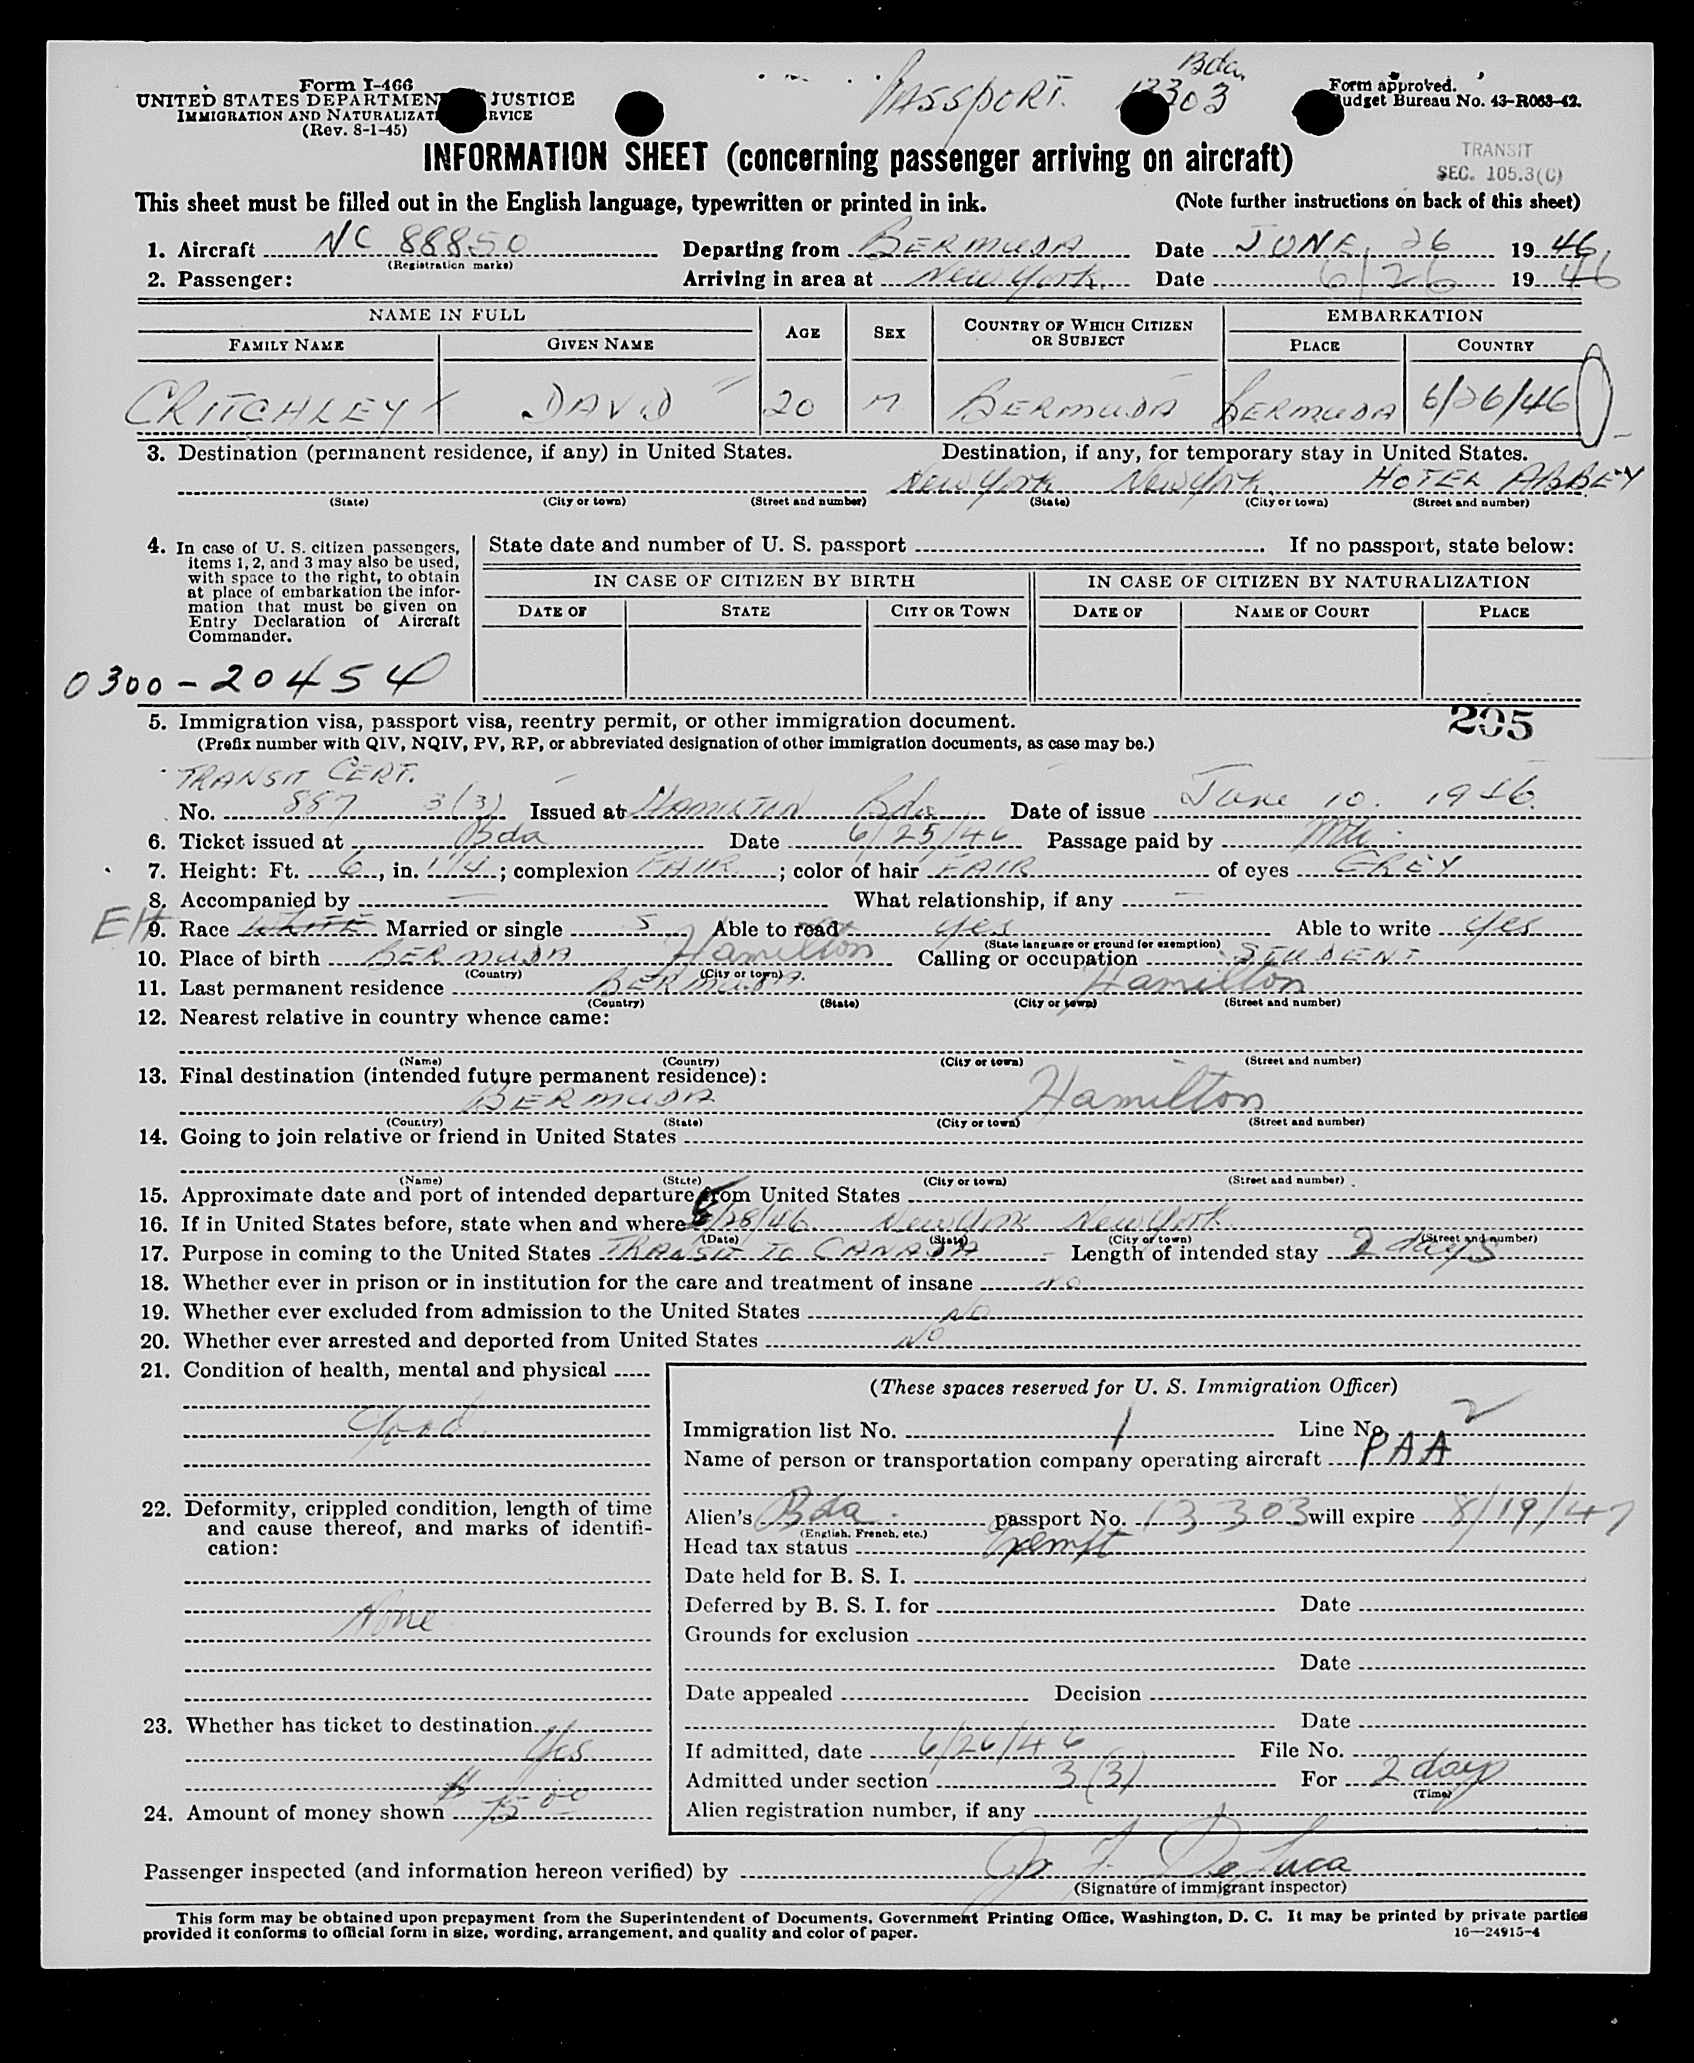 Form I-466
UNITED STATES DEPARTMENT JUSTICE
IMMIGRATION AND NATURALIZAT RVICE
(Rev. 8-1-45)
PASSPORT. Bda. 13303
Form approved.
Budget Bureau No. 43-R063-42.
INFORMATION SHEET (concerning passenger arriving on aircraft)
TRANSIT
SEC. 105.3(C)
This sheet must be filled out in the English language, typewritten or printed in ink. (Note further instructions on back of this sheet)
1. Aircraft NC 88850 Departing from BERMUDA Date JUNE 26 1946
(Registration marks)
2. Passenger: Arriving in area at New York. Date 6/26 1946
NAME IN FULL AGE SEX COUNTRY OF WHICH CITIZEN OR SUBJECT EMBARKATION
FAMILY NAME GIVEN NAME PLACE COUNTRY
CRITCHLEY DAVID 20 M BERMUDA BERMUDA 6/26/46
3. Destination (permanent residence, if any) in United States. Destination, if any, for temporary stay in United States.
New York New York HOTEL ABBEY
(State) (City or town) (Street and number) (State) (City or town) (Street and number)
4. In case of U. S. citizen passengers, items 1, 2, and 3 may also be used, with space to the right, to obtain at place of embarkation the information that must be given on Entry Declaration of Aircraft Commander.
State date and number of U. S. passport If no passport, state below:
IN CASE OF CITIZEN BY BIRTH IN CASE OF CITIZEN BY NATURALIZATION
DATE OF STATE CITY OR TOWN DATE OF NAME OF COURT PLACE
0300-20454
5. Immigration visa, passport visa, reentry permit, or other immigration document. 205
(Prefix number with QIV, NQIV, PV, RP, or abbreviated designation of other immigration documents, as case may be.)
TRANSIT CERT.
No. 887 3(3) Issued at HAMILTON Bda Date of issue June 10. 1946.
6. Ticket issued at Bda Date 6/25/46 Passage paid by
7. Height: Ft. 6, in. 1 1/4; complexion FAIR; color of hair FAIR of eyes GREY
8. Accompanied by - What relationship, if any -
EH 9. Race WHITE Married or single S Able to read yes Able to write yes
(State language or ground for exemption)
10. Place of birth BERMUDA Hamilton Calling or occupation STUDENT
(Country) (City or town)
11. Last permanent residence BERMUDA Hamilton
(Country) (State) (City or town) (Street and number)
12. Nearest relative in country whence came:
(Name) (Country) (City or town) (Street and number)
13. Final destination (intended future permanent residence):
BERMUDA Hamilton
(Country) (State) (City or town) (Street and number)
14. Going to join relative or friend in United States
(Name) (State) (City or town) (Street and number)
15. Approximate date and port of intended departure from United States
16. If in United States before, state when and where /28/46 New York New York
(Date) (State) (City or town) (Street and number)
17. Purpose in coming to the United States TRANSIT TO CANADA Length of intended stay 2 days
18. Whether ever in prison or in institution for the care and treatment of insane no
19. Whether ever excluded from admission to the United States NO
20. Whether ever arrested and deported from United States NO
21. Condition of health, mental and physical
Good.
22. Deformity, crippled condition, length of time and cause thereof, and marks of identification:
None
23. Whether has ticket to destination
Yes
24. Amount of money shown $75.00
(These spaces reserved for U. S. Immigration Officer)
Immigration list No. 1 Line No. 2
Name of person or transportation company operating aircraft PAA
Alien's Bda. passport No. 13303 will expire 8/19/47
(English, French, etc.)
Head tax status Exempt
Date held for B. S. I.
Deferred by B. S. I. for Date
Grounds for exclusion
Date
Date appealed Decision
Date
If admitted, date 6/26/46 File No.
Admitted under section 3(3) For 2 days
(Time)
Alien registration number, if any
Passenger inspected (and information hereon verified) by De Luca
(Signature of immigrant inspector)
This form may be obtained upon prepayment from the Superintendent of Documents, Government Printing Office, Washington, D. C. It may be printed by private parties
provided it conforms to official form in size, wording, arrangement, and quality and color of paper. 16—24915-4